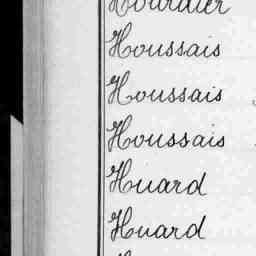 Hourdier
Houssais
Houssais
Houssais
Huard
Huard